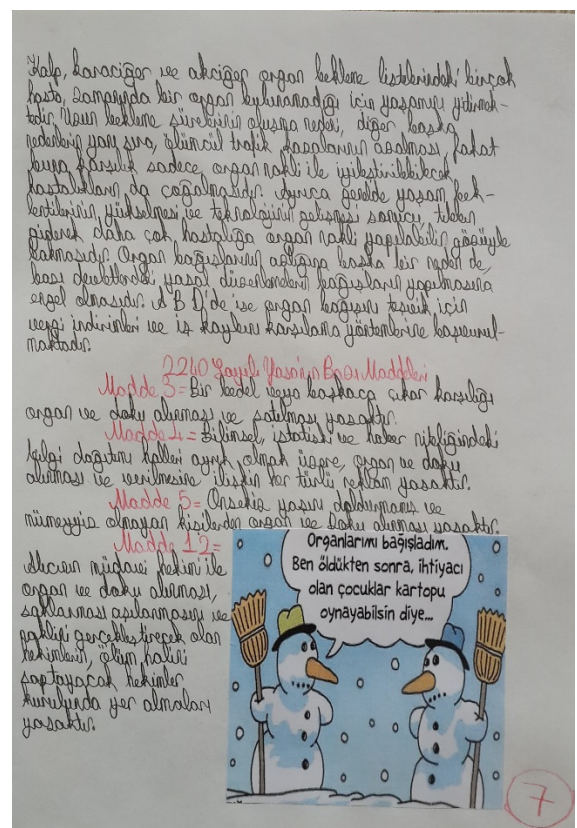 Kalp, karaciğer ve akciğer organ bekleme listelerindeki birçok
hasta, zamanında bir organ bulunamadığı için yaşamını yitirmek-
tedir. Uzun bekleme sürelerinin oluşma nedeni, diğer başka
nedenlerin yanı sıra, ölümcül trafik kazalarının azalması, fakat
buna karşılık sadece organ nakli ile iyileştirilebilecek
hastalıkların da çoğalmasıdır. Ayrıca genelde yaşam bek-
lentilerinin yükselmesi ve teknolojinin gelişmesi sonucu, tıbben
giderek daha çok hastalığa organ nakli yapılabilir gözüyle
bakmasıdır. Organ bağışlarının azlığına başka bir neden de,
bazı devletlerdeki yasal düzenlemelerin bağışların yapılmasına
engel olmasıdır. ABD'de ise organ bağışını teşvik için
vergi indirimleri ve iş kaybını karşılama yöntemlerine başvurul-
maktadır.
2240 Sayılı Yasa'nın Bazı Maddeleri
Madde 3= Bir bedel veya başkaca çıkar karşılığı
organ ve doku alınması ve satılması yasaktır.
Madde 4= Bilimsel, istatistiki ve haber niteliğindeki
bilgi dağıtımı halleri ayrık olmak üzere, organ ve doku
alınması ve verilmesine ilişkin her türlü reklam yasaktır.
Madde 5= Onsekiz yaşını doldurmamış ve
mümeyyiz olmayan kişilerden organ ve doku alınması yasaktır.
Madde 12=
Alıcının müdavi hekimi ile
organ ve doku alınması,
saklanması aşılanmasını ve
naklini gerçekleştirecek olan
hekimlerin, ölüm halini
saptayacak hekimler
kurulunda yer almaları
yasaktır.
Organlarımı bağışladım.
Ben öldükten sonra, ihtiyacı
olan çocuklar kartopu
oynayabilsin diye...
7